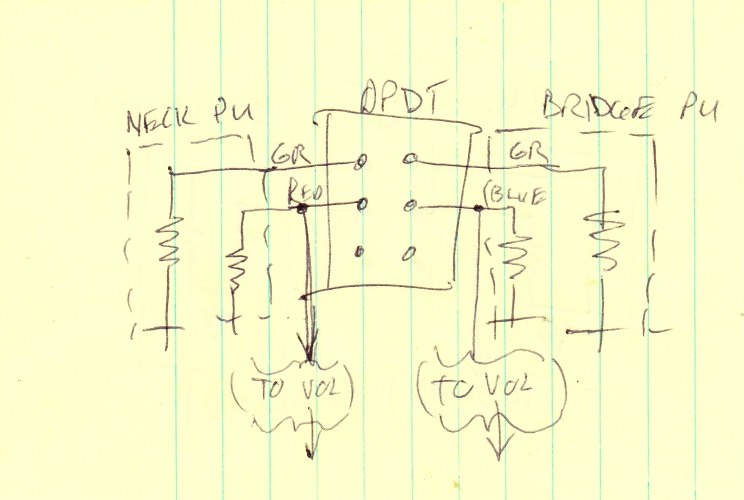 DPDT
NECK PU
BRIDGE PU
GR
GR
RED
BLUE
TO VOL
TO VOL